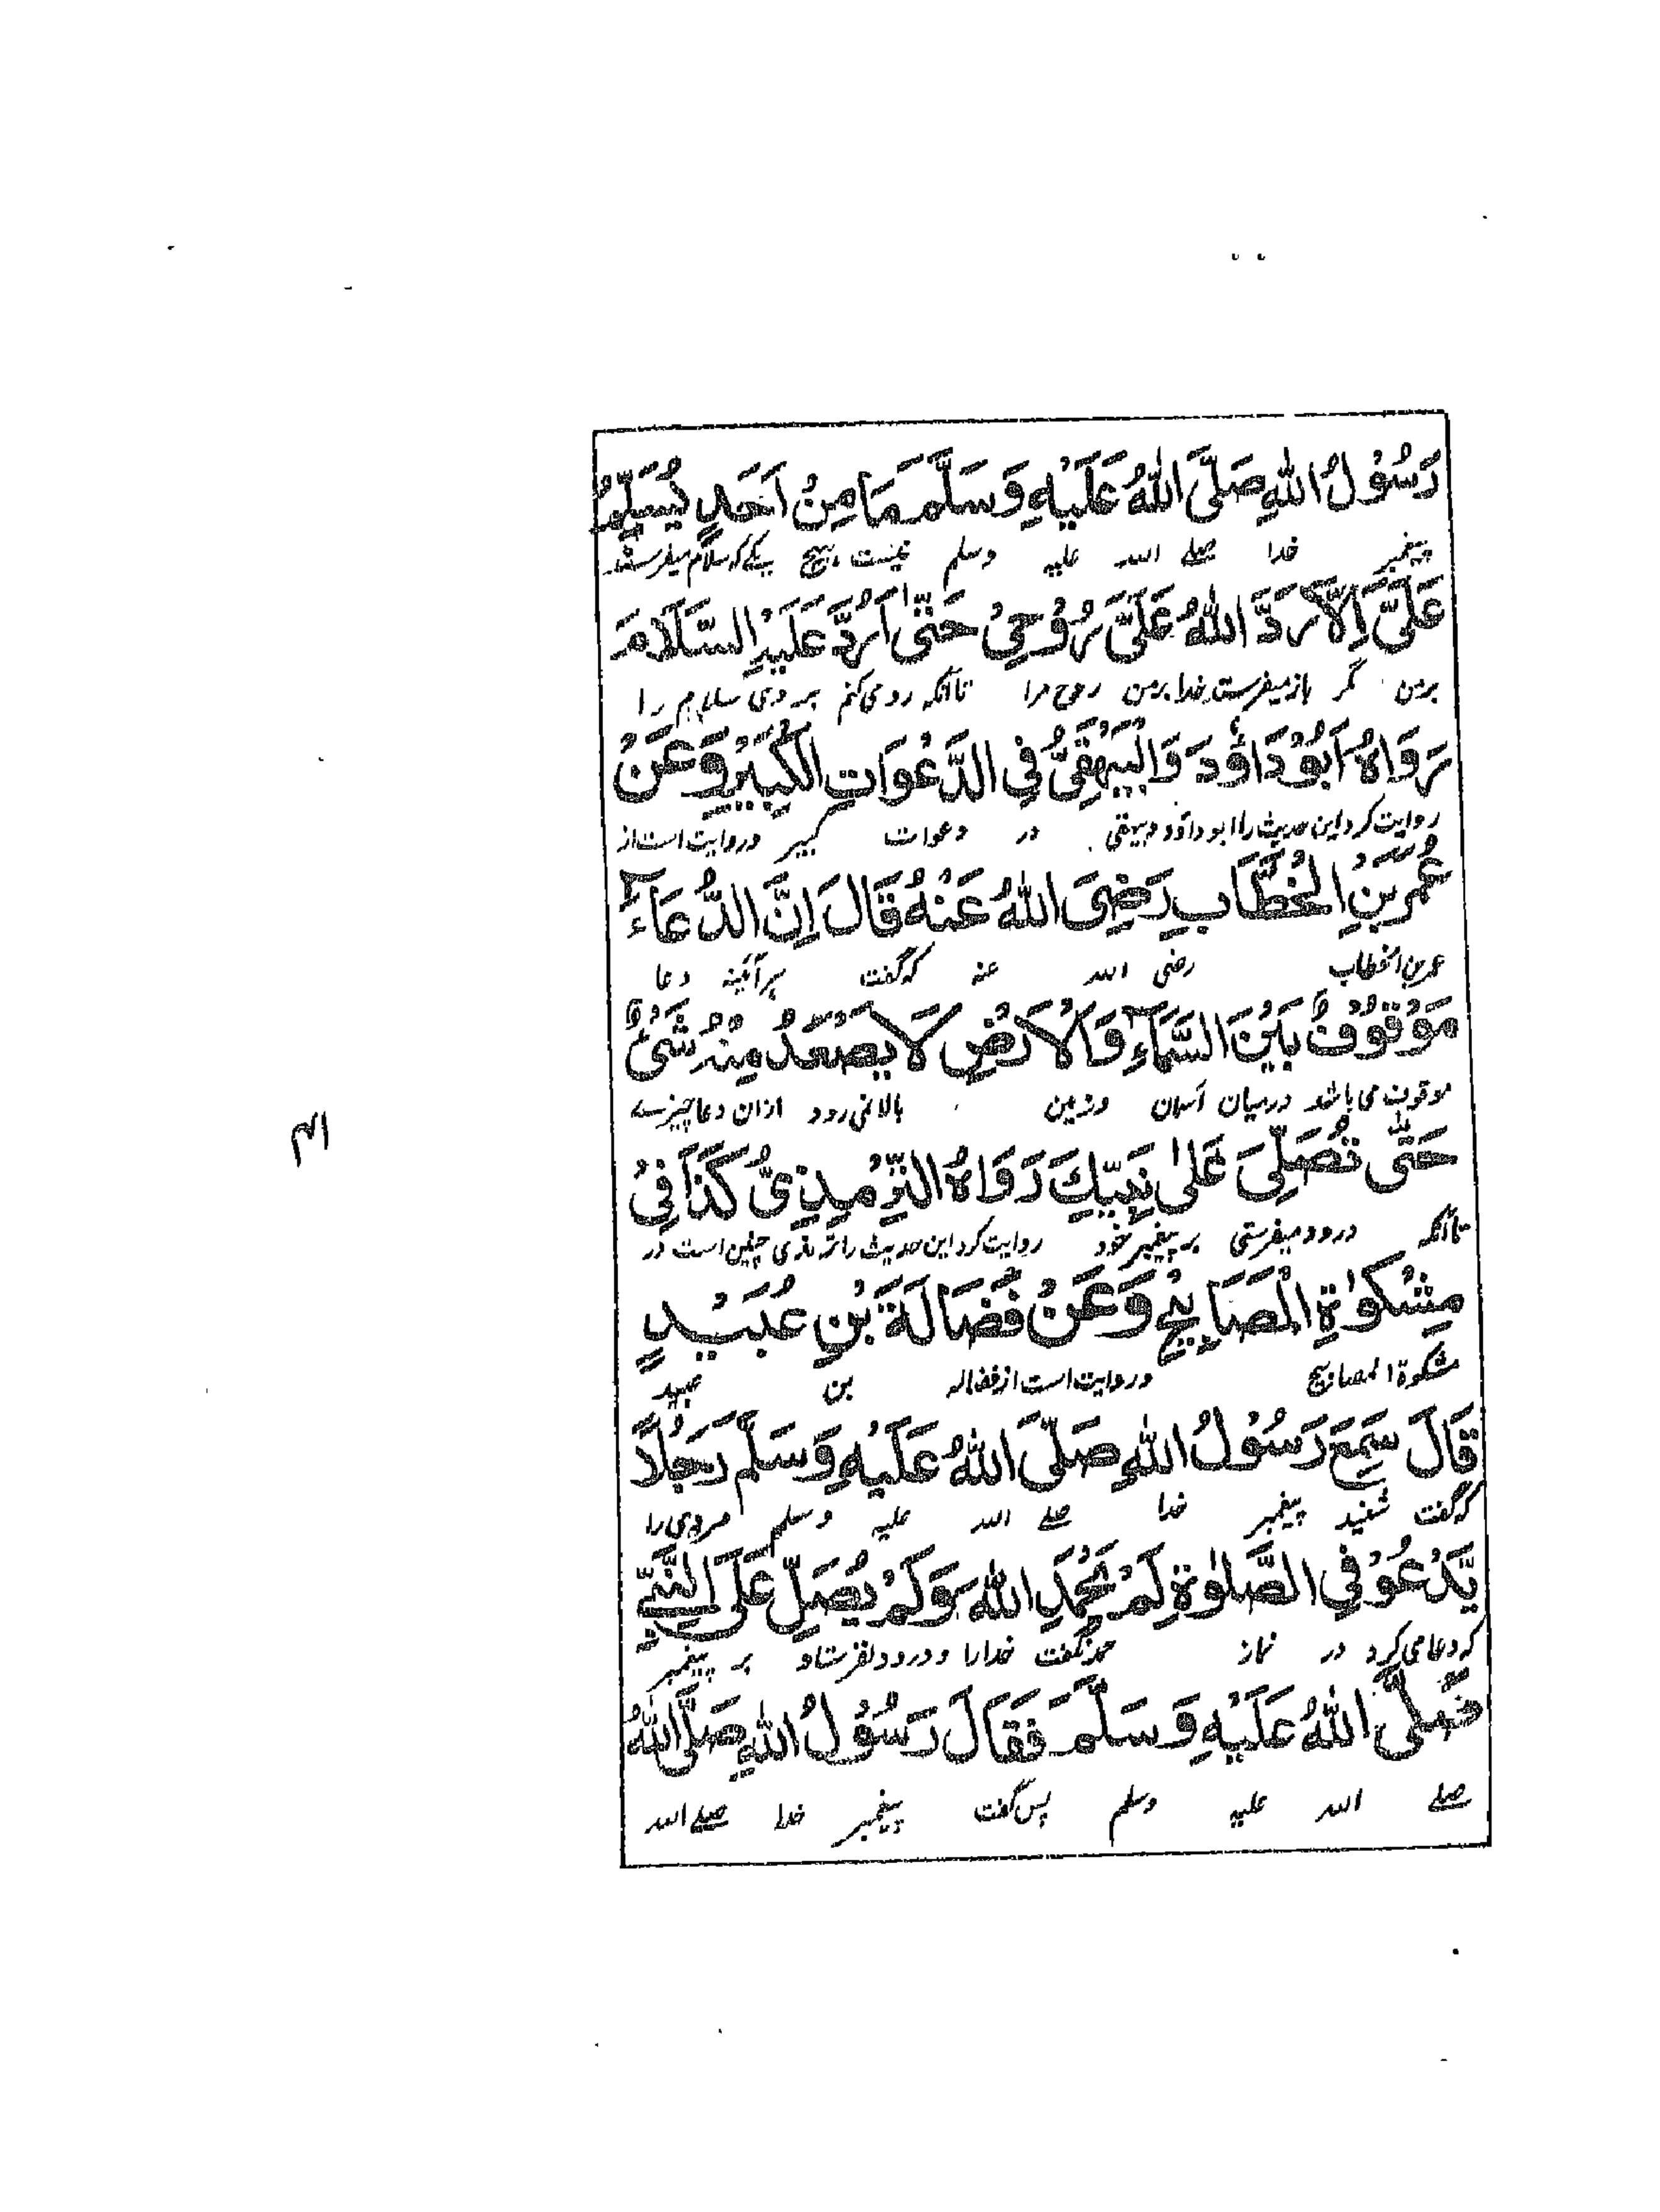 رَسُوْلُ اللهِ صَلَّى اللهُ عَلَيْهِ وَسَلَّمَ مَا مِنْ اَحَدٍ يُسَلِّمُ
پیغمبر خدا صلے اللہ علیہ وسلم نیست ہیچ یکے کہ سلام میفرستد
عَلَيَّ اِلَّا رَدَّ اللهُ عَلَيَّ رُوْحِيْ حَتّٰى اَرُدَّ عَلَيْهِ السَّلَامَ
برمن مگر باز میفرستد خدا برمن روح مرا تا آنکہ رد می کنم بر وی سلام را
رَوَاهُ اَبُوْ دَاوٗدَ وَالْبَيْهَقِيُّ فِي الدَّعَوَاتِ الْكَبِيْرِ وَعَنْ
روایت کرد این حدیث را ابو داؤد و بیہقی در دعوات کبیر و روایت است از
عُمَرَ بْنِ الْخَطَّابِ رَضِيَ اللهُ عَنْهُ قَالَ اِنَّ الدُّعَآءَ
عمر بن الخطاب رضی اللہ عنہ کہ گفت ہر آئینہ دعا
مَوْقُوْفٌ بَيْنَ السَّمَآءِ وَالْاَرْضِ لَا يَصْعَدُ مِنْهُ شَيْءٌ
موقوف می باشد درمیان آسمان و زمین بالا نمی رود ازان دعا چیزے
حَتّٰى تُصَلِّيَ عَلٰى نَبِيِّكَ رَوَاهُ التِّرْمِذِيُّ كَذَا فِيْ
تا آنکہ درود میفرستی بر پیغمبر خود روایت کرد این حدیث را ترمذی چنین است در
مِشْكٰوةِ الْمَصَابِيْحِ وَعَنْ فَضَالَةَ بْنِ عُبَيْدٍ
مشکوۃ المصابیح و روایت است از فضالہ بن عبید
قَالَ سَمِعَ رَسُوْلُ اللهِ صَلَّى اللهُ عَلَيْهِ وَسَلَّمَ رَجُلًا
کہ گفت شنید پیغمبر خدا صلے اللہ علیہ وسلم مردی را
يَّدْعُوْ فِي الصَّلٰوةِ لَمْ يَحْمَدِ اللهَ وَلَمْ يُصَلِّ عَلَى النَّبِيِّ
کہ دعا می کرد در نماز حمد نگفت خدا را و درود نفرستاد بر پیغمبر
صَلَّى اللهُ عَلَيْهِ وَسَلَّمَ فَقَالَ رَسُوْلُ اللهِ صَلَّى اللهُ
صلے اللہ علیہ وسلم پس گفت پیغمبر خدا صلے اللہ